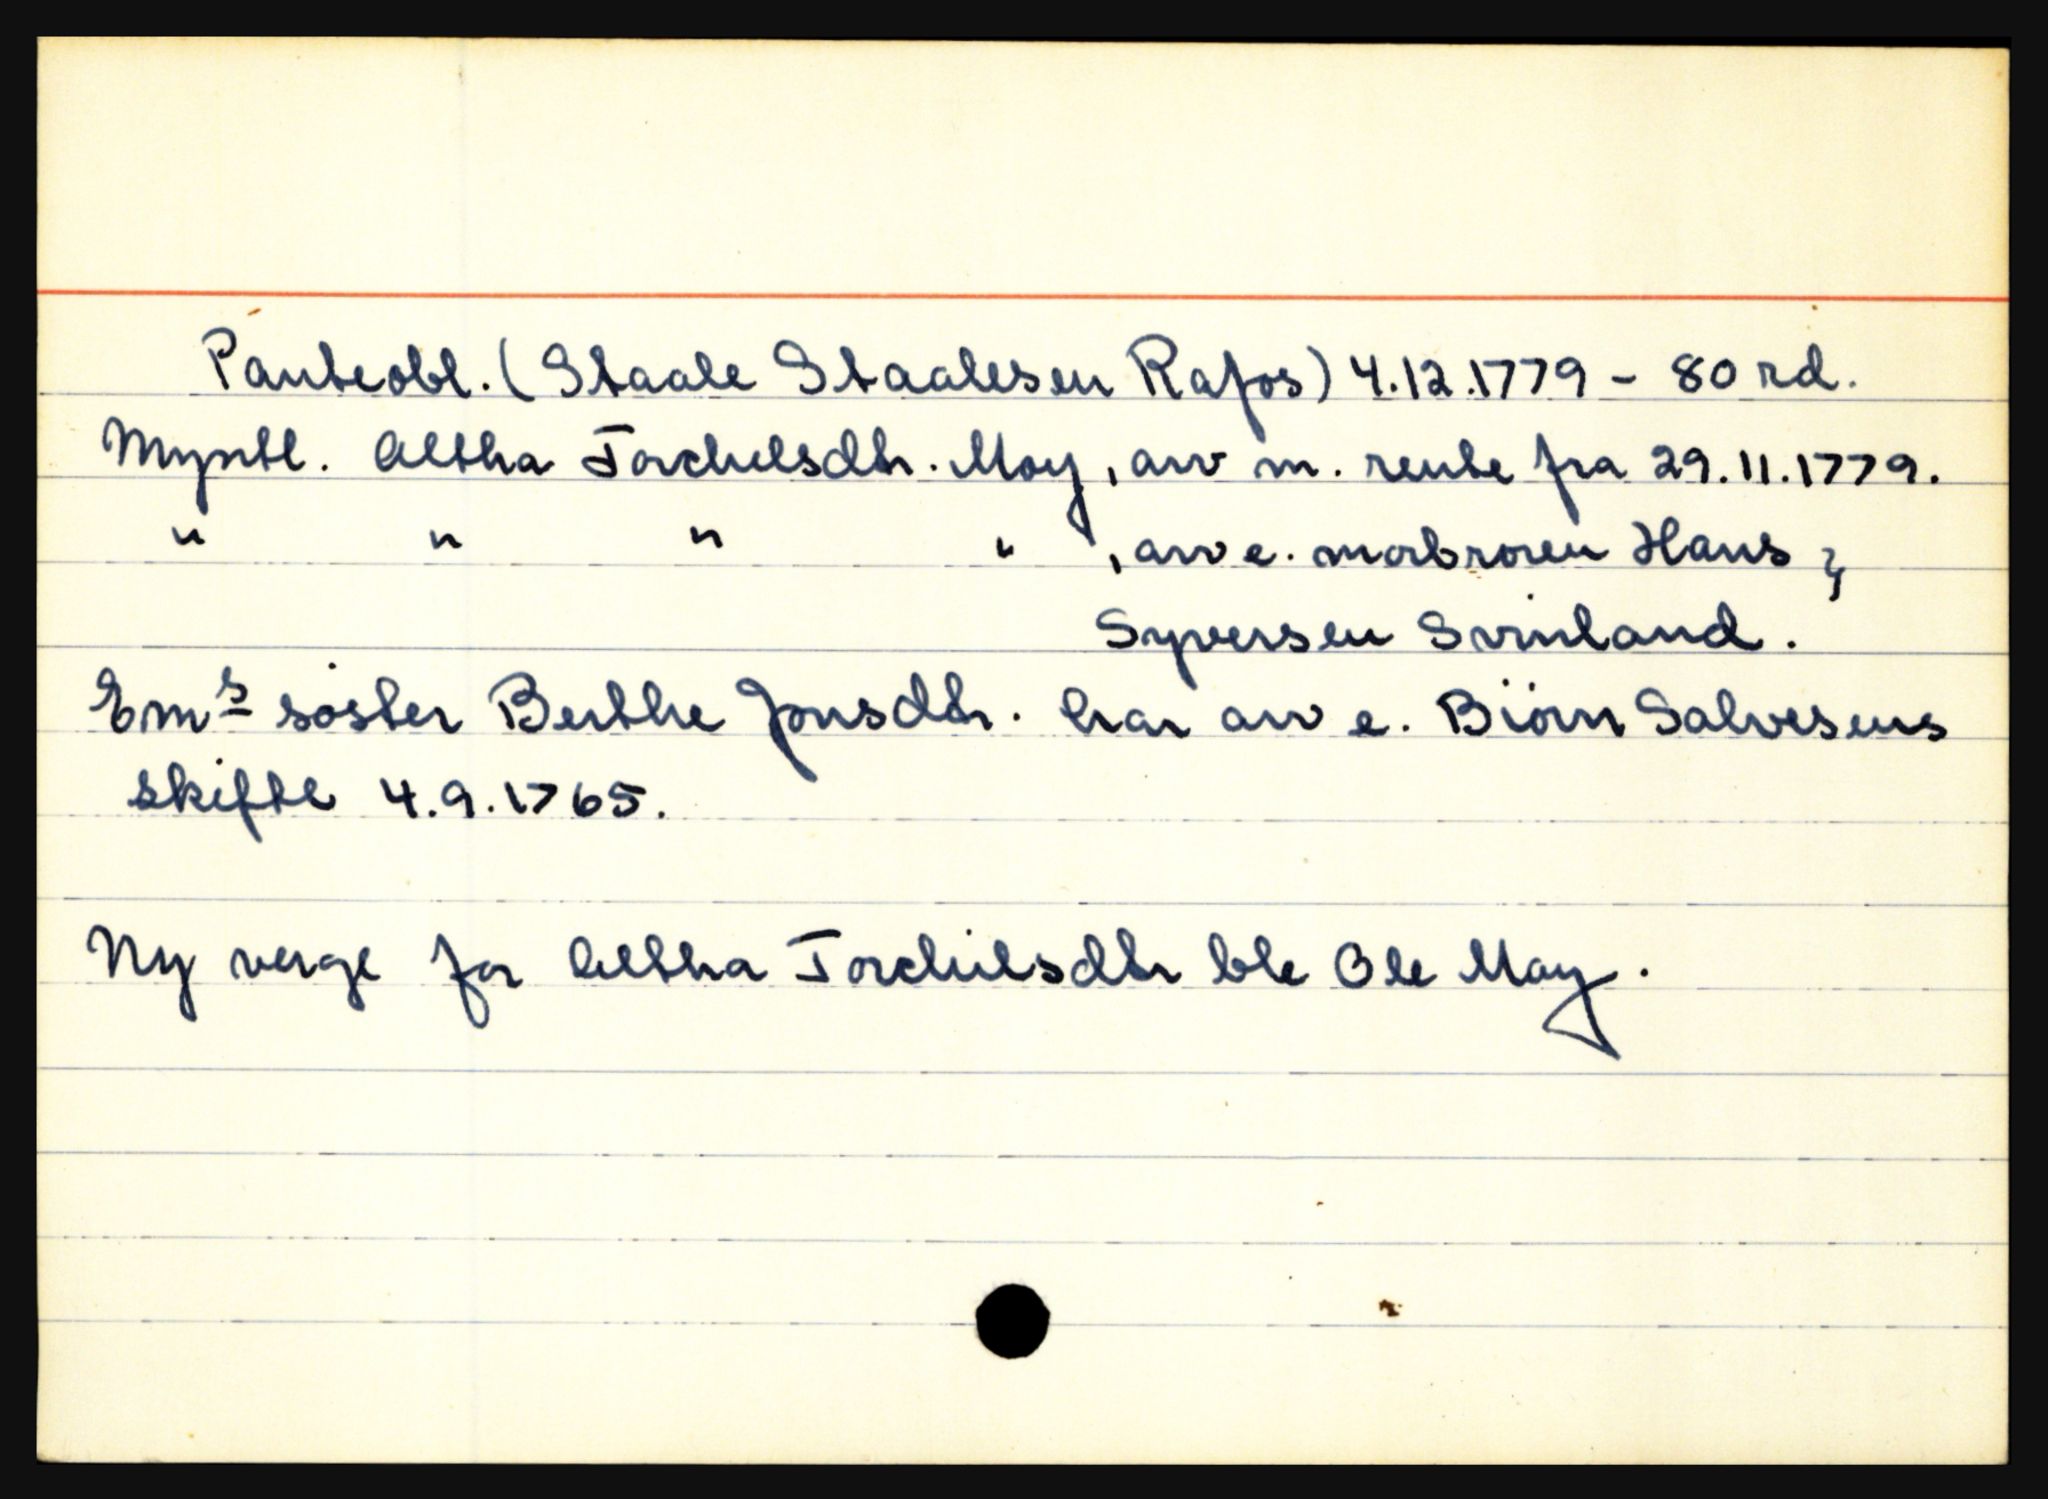 Panteobl. (Staale Staalesen Rafos) 4.12.1779 - 80 rd.
Myntl. Altha Torchelsdtr. Moy, arv m. rente fra 29.11.1779.
" " " " , arv e. morbroren Hans
Syversen Svinland.
Em^s søster Berthe Jonsdtr. har arv e. Biörn Salvesens
skifte 4.9.1765.
Ny verge for Altha Torchilsdtr ble Ole May.